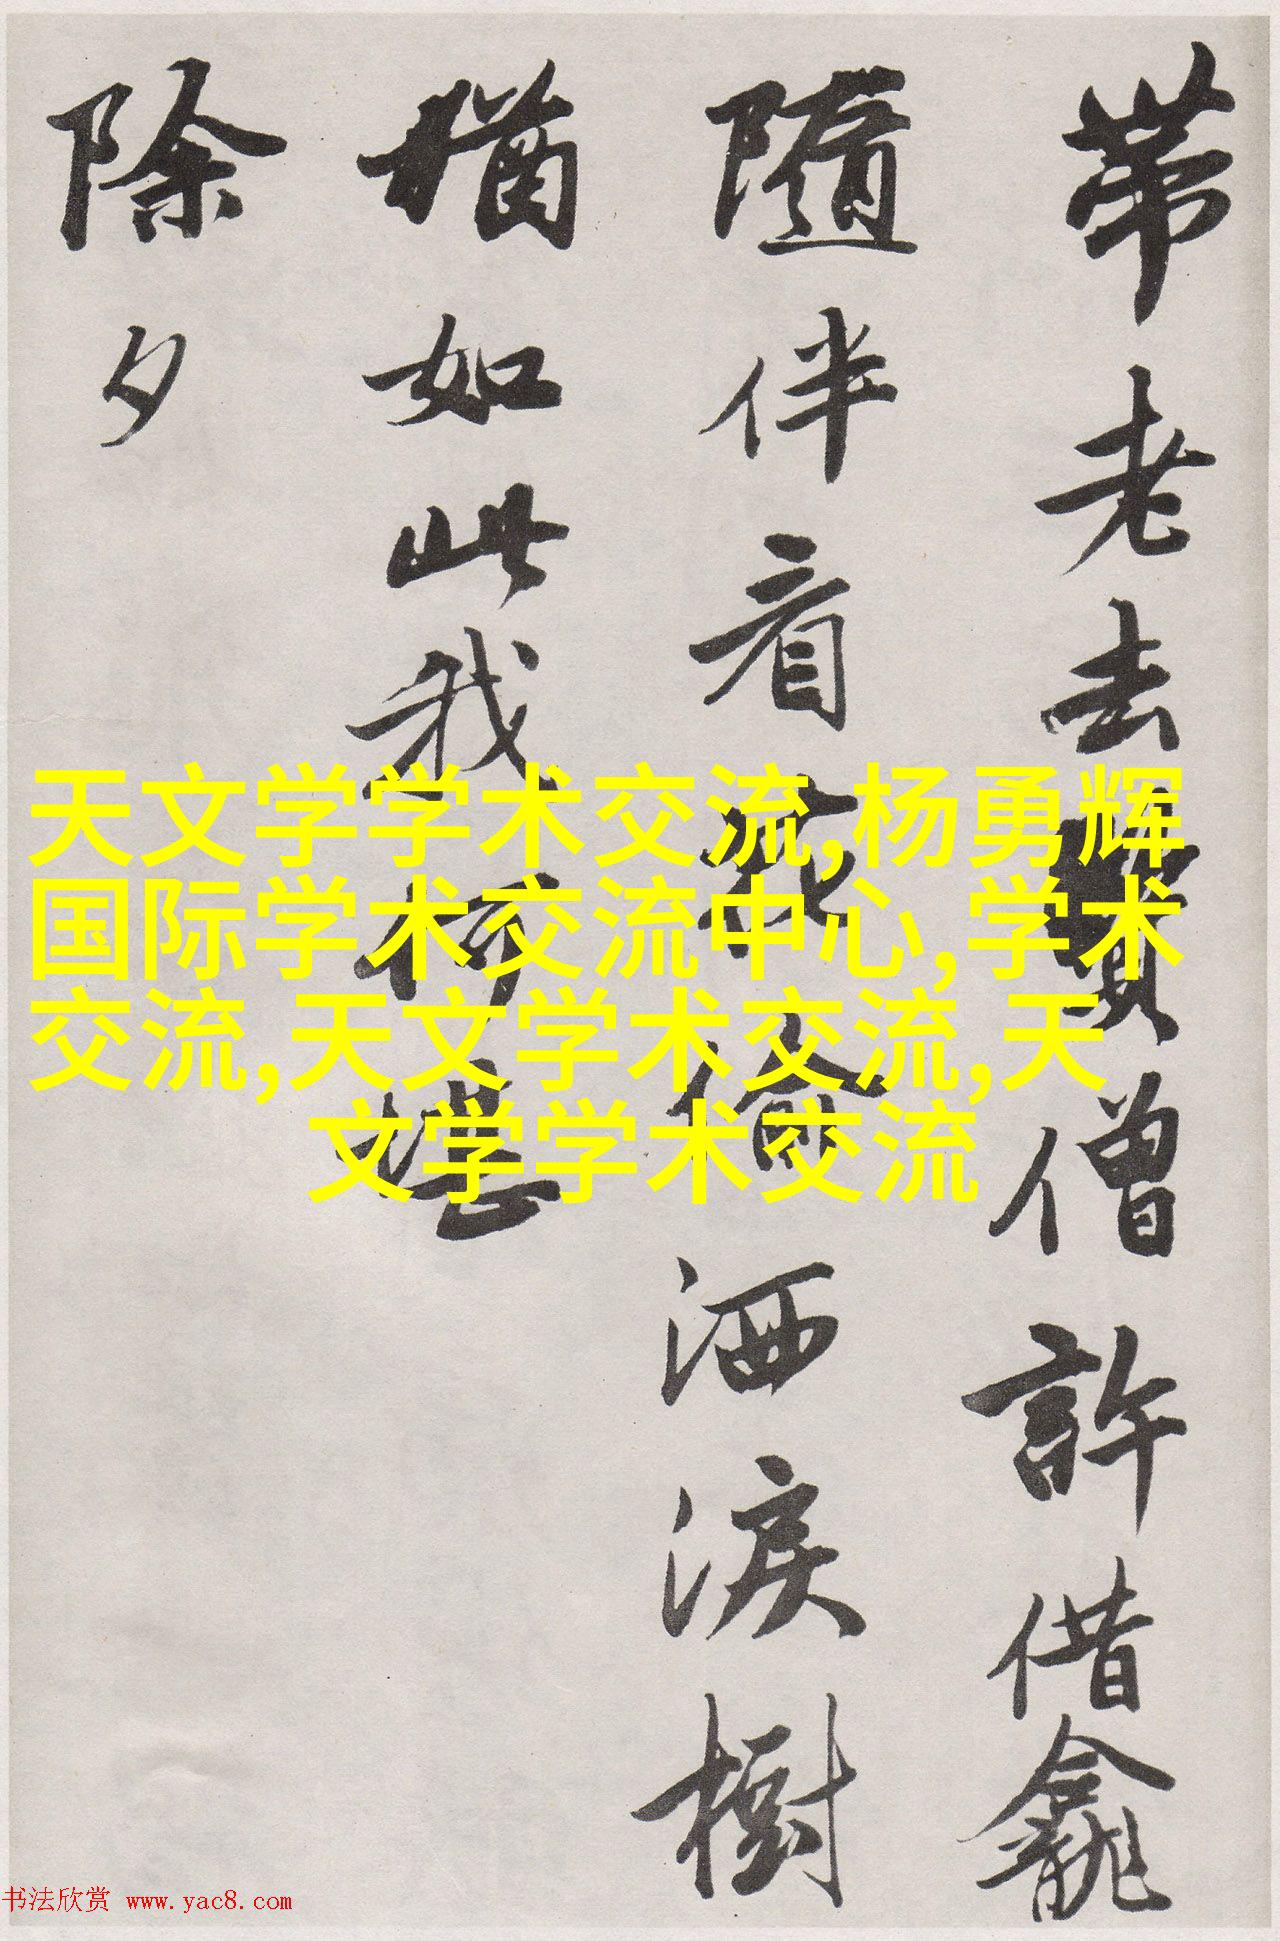 帶老去賣僧許借龕
隨伴看花偷洒淚樹
猶如此我何堪
除夕
天文学学术交流,杨勇辉
国际学术交流中心,学术
交流,天文学术交流,天
文学学术交流
书法欣赏 www.yac8.com